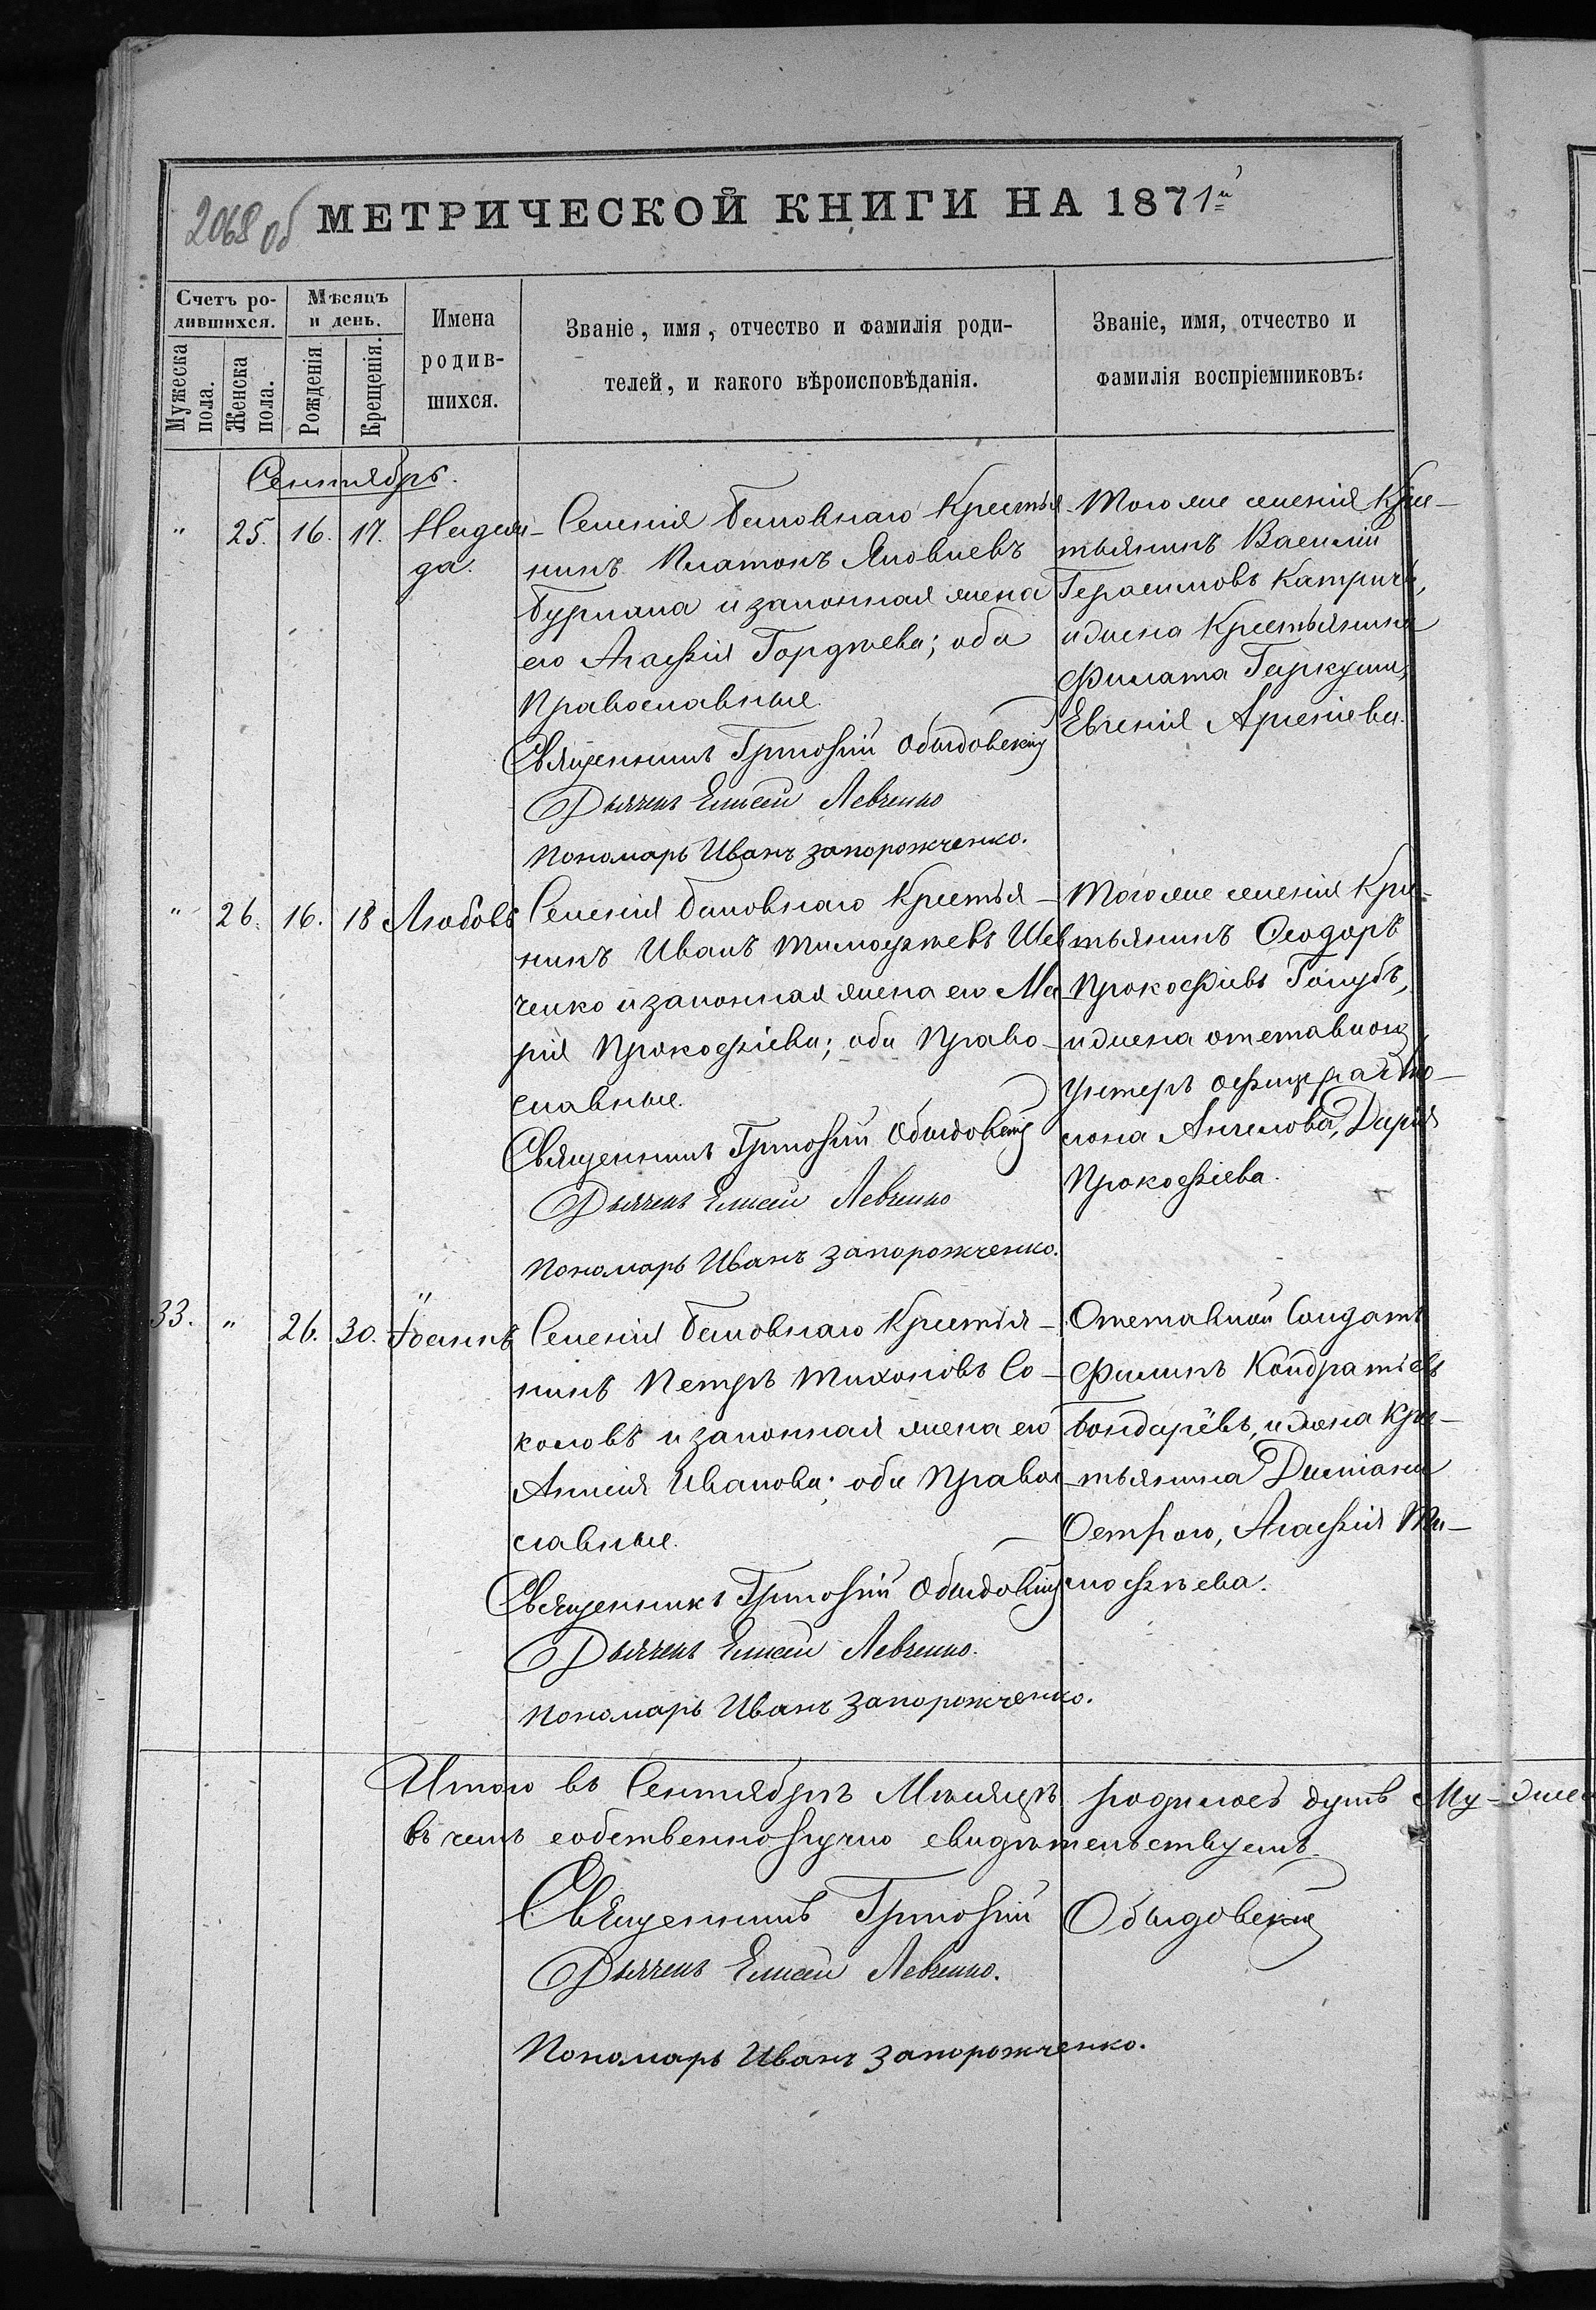 2068 об МЕТРИЧЕСКОЙ КНИГИ НА 1871й
Счетъ ро-
дившихся.
Мужеска
пола.
Женска
пола.
Мѣсяцъ
и день.
Рожденія
Крещенія.
Имена
родив-
шихся.
Званіе, имя, отчество и фамилія роди-
телей, и какого вѣроисповѣданія.
Званіе, имя, отчество и
фамилія воспріемниковъ:
Сентябрь.
" 25. 16. 17. Надеж-
да.
Селенія Бешовнаго Крестья-
нинъ Платонъ Яковлевъ
Бурлака и законная жена
его Агафія Гордѣева; оба
Православные.
Священникъ Григорій Обыдовскій
Дьячекъ Елисей Левченко
Пономарь Иванъ Запорожченко.
Того же селенія Крес-
тьянинъ Василій
Герасимовъ Катричъ,
и жена Крестьянина
Филата Гаркуши,
Евгенія Арсеніева.
" 26. 16. 18 Любовь
Селенія Бешовнаго Крестья-
нинъ Иванъ Тимофѣевъ Шев
ченко и законная жена его Ма
рія Прокофіева; оба Право-
славные.
Священникъ Григорій Обыдовскій
Дьячекъ Елисей Левченко
Пономарь Иванъ Запорожченко.
Того же селенія Крес-
тьянинъ Ѳеодоръ
Прокофіевъ Голубъ,
и жена отставного
Унтеръ офицера
Ангелова, Дарія
Прокофіева.
33. " 26. 30. Іоаннъ
Селенія Бешовнаго Крестья-
нинъ Петръ Тихоновъ Со-
коловъ и законная жена его
Анисія Иванова; оба Право
славные.
Священникъ Григорій Обыдовскій
Дьячекъ Елисей Левченко.
Пономарь Иванъ Запорожченко.
Отставной Солдатъ
Филипъ Кондратіевъ
Бондарёвъ, и жена Крес-
тьянина Даміана
Острого, Агафія Ти-
мофѣева.
Итого въ Сентябрѣ Мѣсяцѣ родилось душъ Му-
въ чемъ собственноручно свидѣтельствуемъ.
Священникъ Григорій Обыдовскій
Дьячекъ Елисей Левченко.
Пономарь Иванъ Запорожченко.